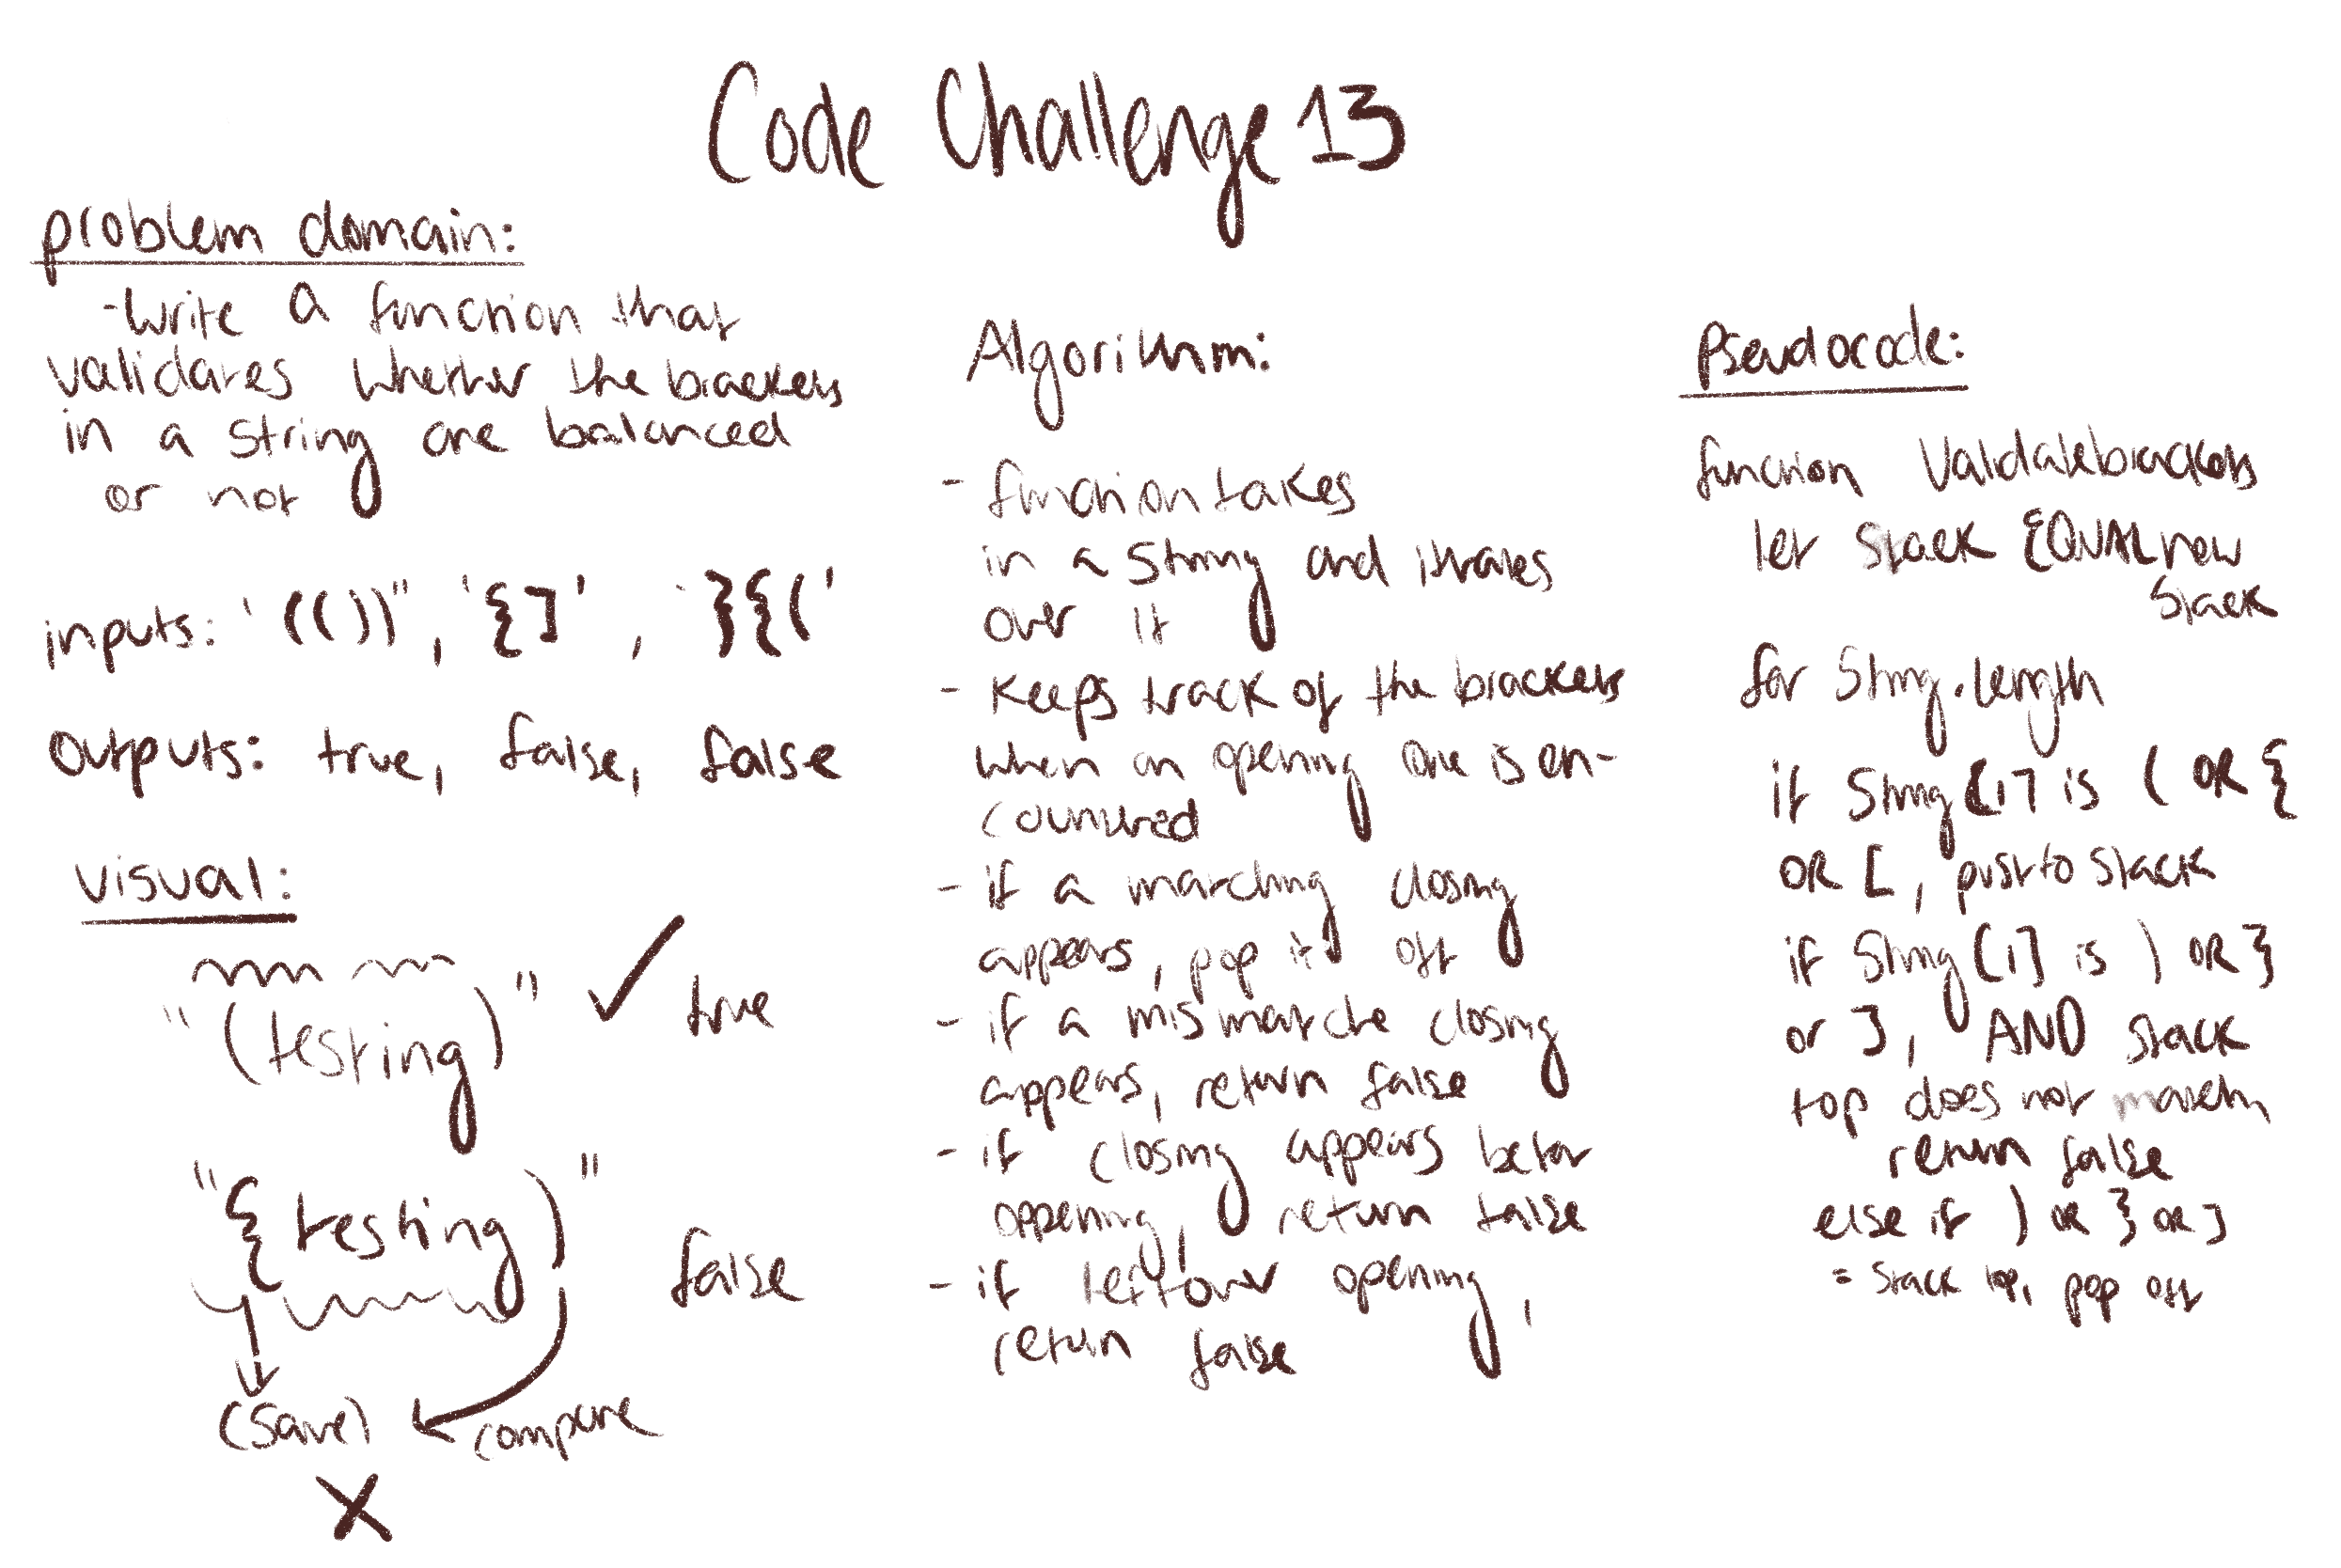 Code Challenge 13
problem domain:
-write a function that
validates whether the brackets
in a string are balanced
or not
inputs: '(())", '{]', '}{('
outputs: true, false, false
visual:
"(testing)" ✓ true
"{testing)" false
(save) compare
X
Algorithm:
- function takes
in a string and itrates
over it
- keeps track of the brackets
when an opening one is en-
countered
- if a matching closing
appears, pop it off
- if a mismatche closing
appears, return false
- if closing appears before
oppening, return false
- if leftover opening,
return false
Pseudocode:
function Validatebrackets
let stack EQUAL new
Stack
for string.length
if string[i] is ( OR {
OR [, push to stack
if string[i] is ) OR }
or ], AND stack
top does not match
return false
else if ) OR } OR ]
= stack top, pop off